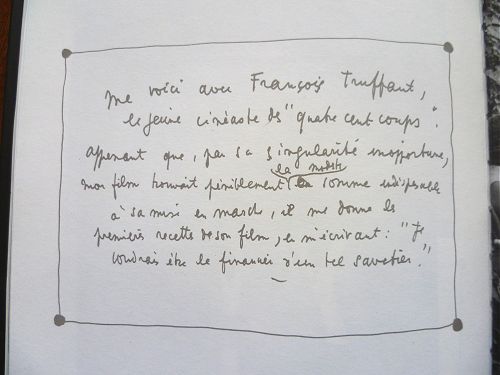 me voici avec François Truffaut,
le jeune cinéaste des "quatre cent coups".
apprenant que, par sa singularité inopportune,
la modeste
mon film trouvait péniblement la somme indispensable
à sa mise en marche, il me donne les
premières recettes de son film, en m'écrivant : "Je
voudrais être le financier d'un tel savetier."